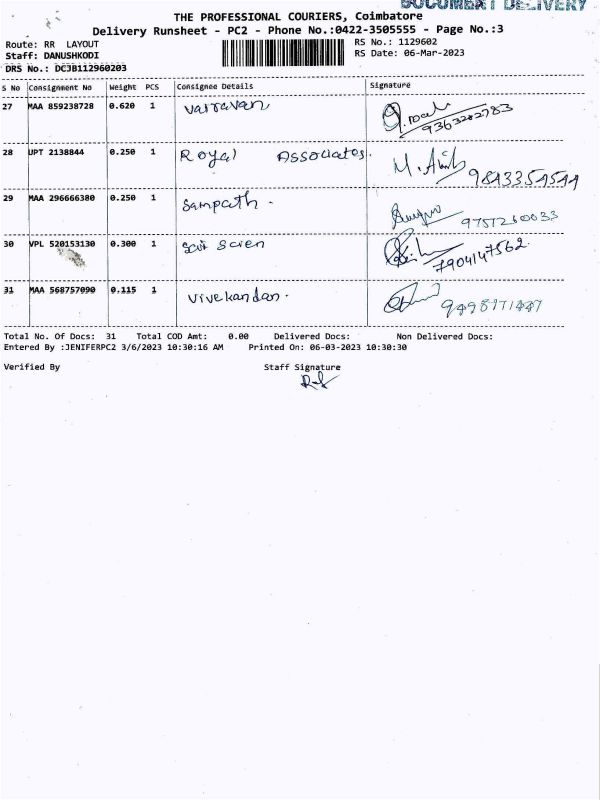 DOCUMENT DELIVERY
THE PROFESSIONAL COURIERS, Coimbatore
Delivery Runsheet - PC2 - Phone No.:0422-3505555 - Page No.:3
Route: RR LAYOUT
RS No.: 1129602
Staff: DANUSHKODI
RS Date: 06-Mar-2023
DRS No.: DC3B112960203
S No Consignment No Weight PCS Consignee Details Signature
27 MAA 859238728 0.620 1 Vairavan
9363202783
28 UPT 2138844 0.250 1 Royal Associates.
9843354544
29 MAA 296666380 0.250 1 Sampath.
9757260033
30 VPL 520153130 0.300 1
7904147562
31 MAA 568757090 0.115 1 Vivekandan.
Total No. Of Docs: 31 Total COD Amt: 0.00 Delivered Docs: Non Delivered Docs:
Entered By :JENIFERPC2 3/6/2023 10:30:16 AM Printed On: 06-03-2023 10:30:30
Verified By Staff Signature